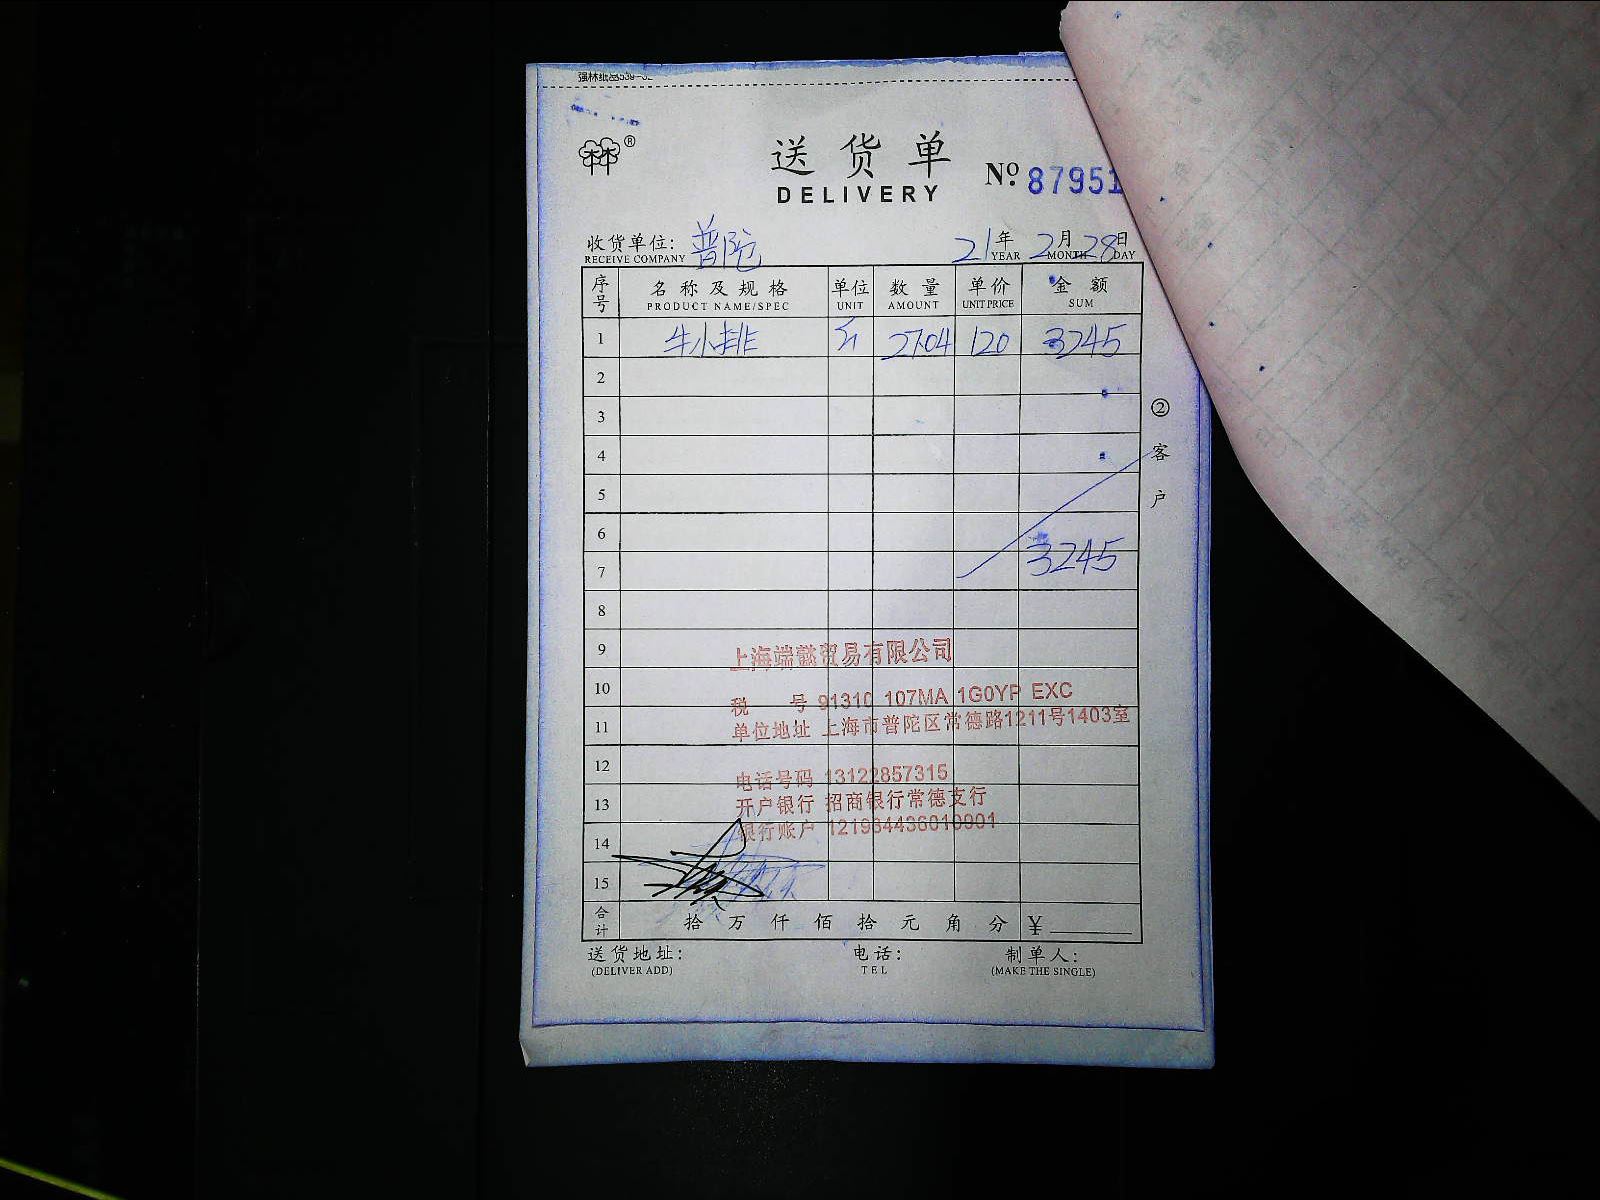 强林纸品539-32
®
送货单
DELIVERY
№ 87951
收货单位: 普陀 21年 2月 28日
RECEIVE COMPANY YEAR MONTH DAY
序号 名称及规格 单位 数量 单价 金额
PRODUCT NAME/SPEC UNIT AMOUNT UNIT PRICE SUM
1 牛小排 斤 27.04 120 3245
2
3
4
5
6
7 3245
8
9
10
11
12
13
14
15
② 客户
上海端懿贸易有限公司
税 号 91310 107MA 1G0YP EXC
单位地址 上海市普陀区常德路1211号1403室
电话号码 13122857315
开户银行 招商银行常德支行
银行账户 121934436010901
合计 拾 万 仟 佰 拾 元 角 分 ¥
送货地址: 电话: 制单人:
(DELIVER ADD) TEL (MAKE THE SINGLE)